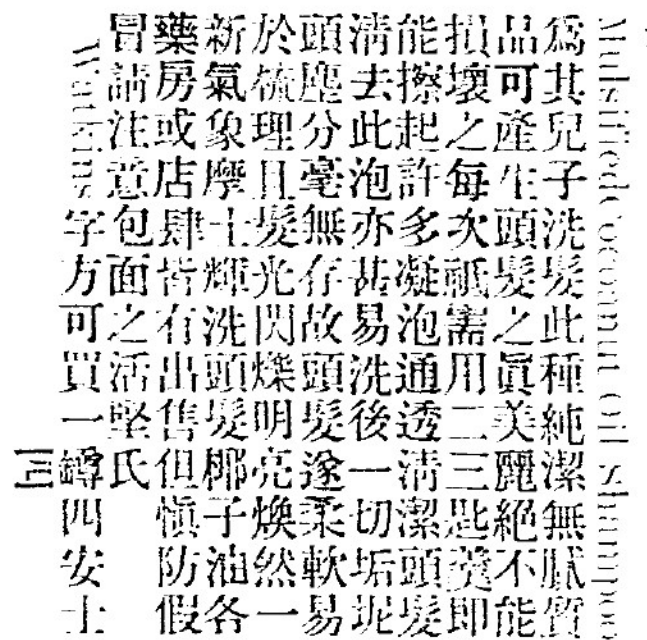 Mulsified cocoanut oil shampoo
為其兒子洗髮此種純潔無膩質
品可產生頭髮之眞美麗絕不能
損壞之每次祇需用二三匙羹即
能擦起許多凝泡通透清潔頭髮
清去此泡亦甚易洗後一切垢坭
頭塵分毫無存故頭髮遂柔軟易
於梳理且髮光閃爍明亮煥然一
新氣象摩士輝洗頭髮椰子油各
藥房或店肆皆有出售但愼防假
冒請注意包面之活堅氏
Watkins字方可買一罇四安士